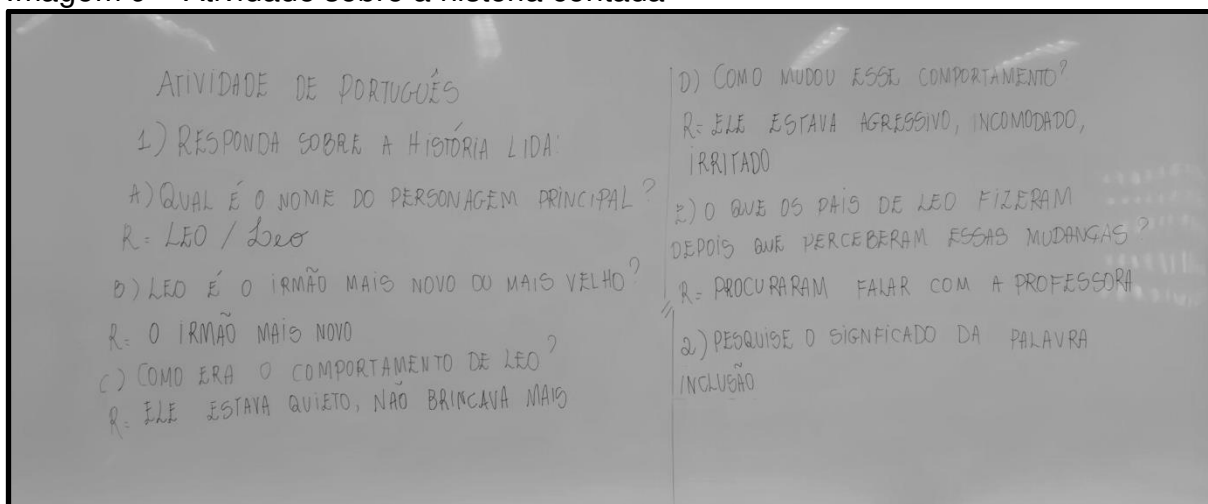 Imagem 6 – Atividade sobre a história contada
ATIVIDADE DE PORTUGUÊS
1) RESPONDA SOBRE A HISTÓRIA LIDA:
A) QUAL É O NOME DO PERSONAGEM PRINCIPAL?
R= LEO / Leo
B) LEO É O IRMÃO MAIS NOVO OU MAIS VELHO?
R= O IRMÃO MAIS NOVO
C) COMO ERA O COMPORTAMENTO DE LEO?
R= ELE ESTAVA QUIETO, NÃO BRINCAVA MAIS
D) COMO MUDOU ESSE COMPORTAMENTO?
R= ELE ESTAVA AGRESSIVO, INCOMODADO,
IRRITADO
E) O QUE OS PAIS DE LEO FIZERAM
DEPOIS QUE PERCEBERAM ESSAS MUDANÇAS?
R= PROCURARAM FALAR COM A PROFESSORA
2) PESQUISE O SIGNFICADO DA PALAVRA
INCLUSÃO